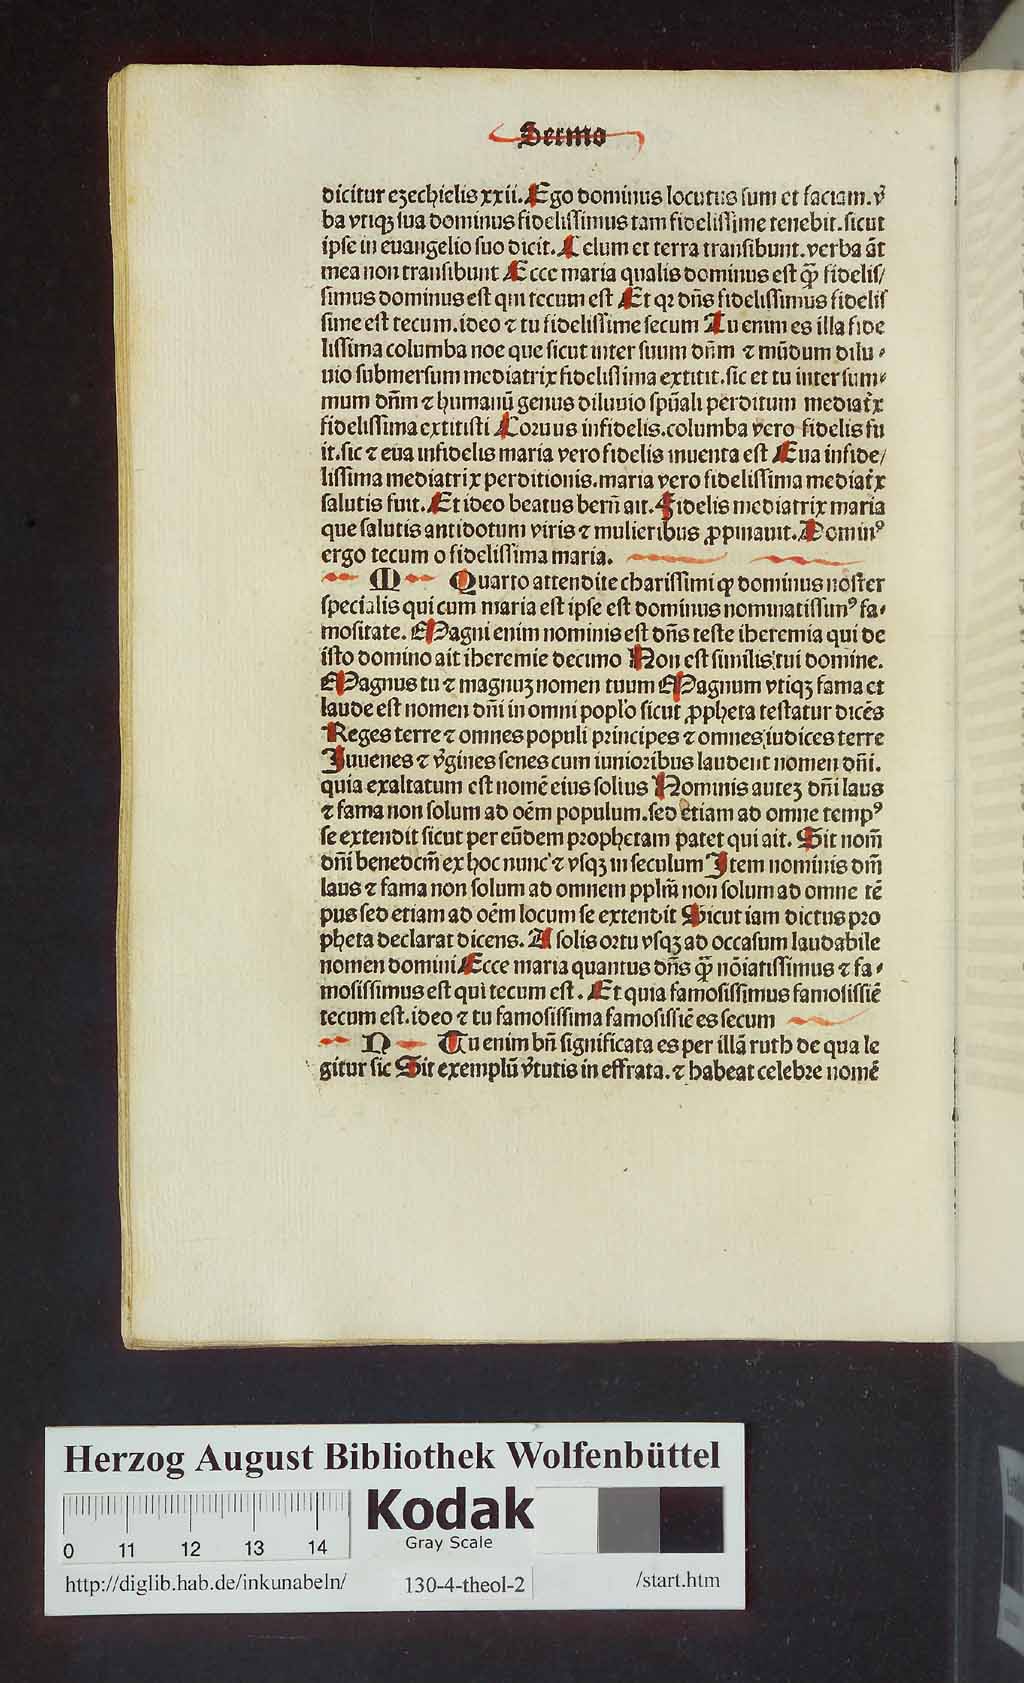 Sermo
dicitur ezechielis xxii. Ego dominus locutus sum et faciam. v̾
ba vtiqꝫ sua dominus fidelissimus tam fidelissime tenebit. sicut
ipse in euangelio suo dicit. Celum et terra transibunt. verba āt
mea non transibunt Ecce maria qualis dominus est qͣꝫ fidelis/
simus dominus est qui tecum est Et qꝛ dn̄s fidelissimus fidelis
sime est tecum. ideo ⁊ tu fidelissime secum Tu enim es illa fide
lissima columba noe que sicut inter suum dn̄m ⁊ mūdum dilu⸗
uio submersum mediatrix fidelissima extitit. sic et tu inter sum⸗
mum dn̄m ⁊ humanū genus diluuio spūali perditum mediatͥx
fidelissima extitisti Coruus infidelis. columba vero fidelis fu
it. sic ⁊ eua infidelis maria vero fidelis inuenta est Eua infide/
lissima mediatrix perditionis. maria vero fidelissima mediatͥx
salutis fuit. Et ideo beatus bern̄ ait. Fidelis mediatrix maria
que salutis antidotum viris ⁊ mulieribus ꝓpinauit. Dominꝰ
ergo tecum o fidelissima maria.
M Quarto attendite charissimi ꝙ dominus noster
specialis qui cum maria est ipse est dominus nominatissimꝰ fa⸗
mositate. Magni enim nominis est dn̄s teste iheremia qui de
isto domino ait iheremie decimo Non est similis tui domine.
Magnus tu ⁊ magnuꝫ nomen tuum Magnum vtiqꝫ fama et
laude est nomen dn̄i in omni poplo sicut ꝓpheta testatur dicēs
Reges terre ⁊ omnes populi principes ⁊ omnes iudices terre
Juuenes ⁊ v̾gines senes cum iunioribus laudent nomen dn̄i.
quia exaltatum est nomē eius solius Nominis auteꝫ dn̄i laus
⁊ fama non solum ad oēm populum. sed etiam ad omne tempꝰ
se extendit sicut per eūdem prophetam patet qui ait. Sit nom̄
dn̄i benedcm̄ ex hoc nunc ⁊ vsqꝫ in seculum Item nominis dn̄i
laus ⁊ fama non solum ad omnem pplm̄ non solum ad omne tē
pus sed etiam ad oēm locum se extendit Sicut iam dictus pro
pheta declarat dicens. A solis ortu vsqꝫ ad occasum laudabile
nomen domini Ecce maria quantus dn̄s qͣꝫ nōiatissimus ⁊ fa⸗
mosissimus est qui tecum est. Et quia famosissimus famosissiē
tecum est. ideo ⁊ tu famosissima famosissiē es secum
N Tu enim bn̄ significata es per illā ruth de qua le
gitur sic Sit exemplū v̾tutis in effrata. ⁊ habeat celebre nomē
Herzog August Bibliothek Wolfenbüttel
Kodak
Gray Scale
0 11 12 13 14
http://diglib.hab.de/inkunabeln/ 130-4-theol-2 /start.htm